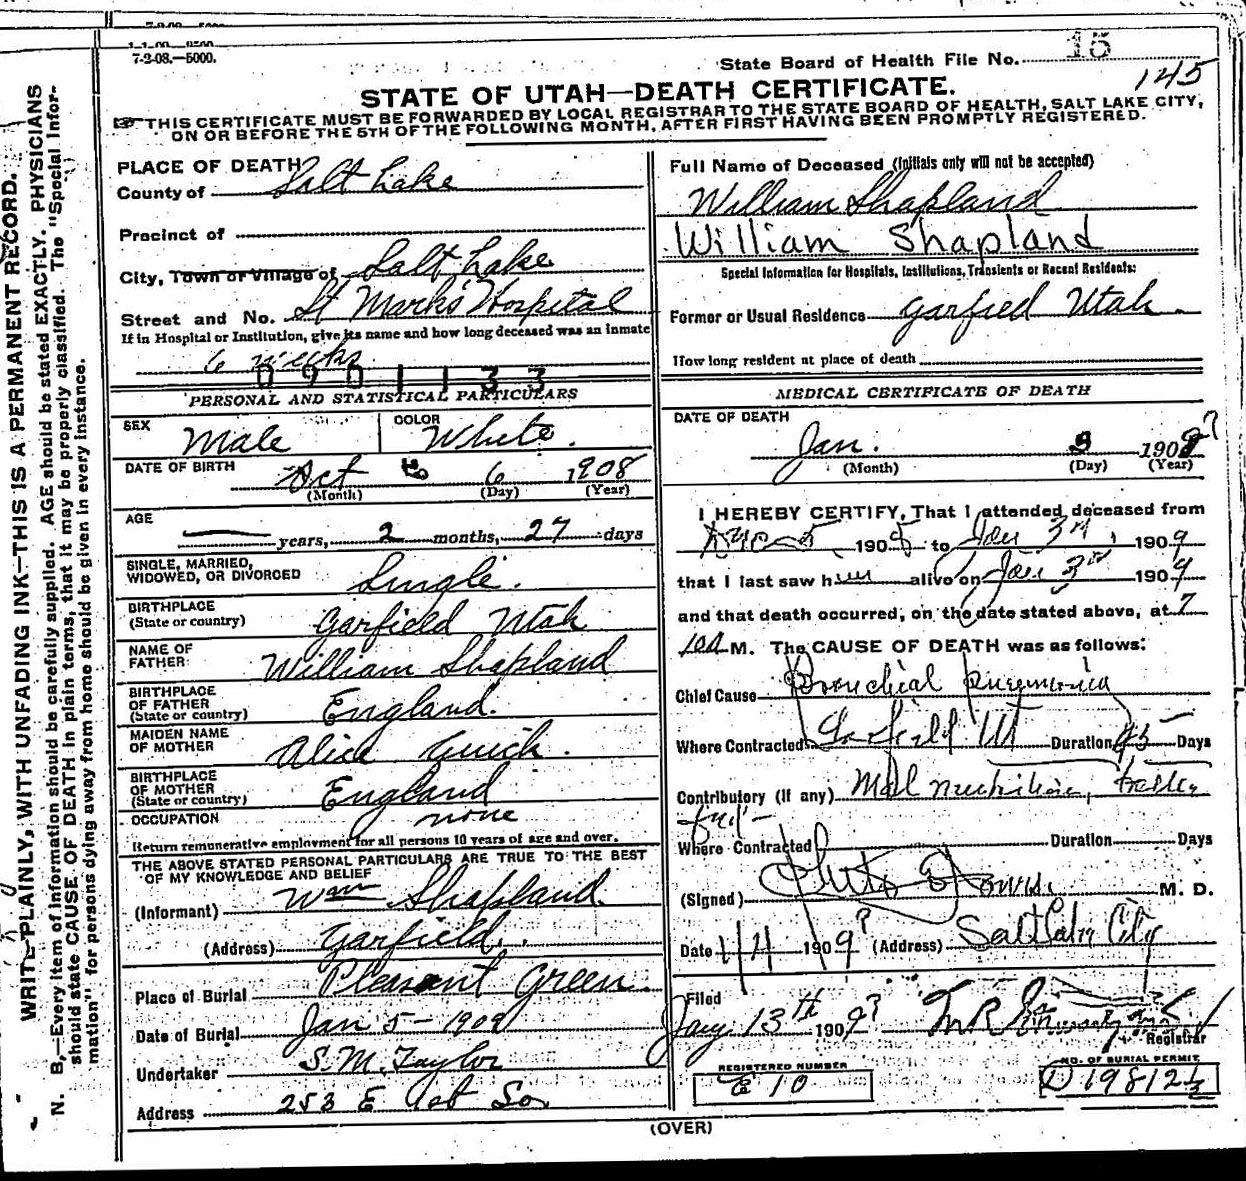 7-2-08.—5000.
State Board of Health File No. 15
145
STATE OF UTAH—DEATH CERTIFICATE.
THIS CERTIFICATE MUST BE FORWARDED BY LOCAL REGISTRAR TO THE STATE BOARD OF HEALTH, SALT LAKE CITY,
ON OR BEFORE THE 5TH OF THE FOLLOWING MONTH, AFTER FIRST HAVING BEEN PROMPTLY REGISTERED.
WRITE PLAINLY, WITH UNFADING INK—THIS IS A PERMANENT RECORD.
N. B.—Every item of information should be carefully supplied. AGE should be stated EXACTLY. PHYSICIANS
should state CAUSE OF DEATH in plain terms, that it may be properly classified. The "Special Infor-
mation" for persons dying away from home should be given in every instance.
PLACE OF DEATH
County of Salt Lake
Precinct of
City, Town or Village of Salt Lake
Street and No. St Marks Hospital
If in Hospital or Institution, give its name and how long deceased was an inmate
6 weeks
0901133
PERSONAL AND STATISTICAL PARTICULARS
SEX Male COLOR White.
DATE OF BIRTH Oct 6 1908
(Month) (Day) (Year)
AGE
— years, 2 months, 27 days
SINGLE, MARRIED,
WIDOWED, OR DIVORCED Single.
BIRTHPLACE
(State or country) Garfield Utah
NAME OF
FATHER William Shapland
BIRTHPLACE
OF FATHER
(State or country) England.
MAIDEN NAME
OF MOTHER Alice
BIRTHPLACE
OF MOTHER
(State or country) England
OCCUPATION none
Return remunerative employment for all persons 10 years of age and over.
THE ABOVE STATED PERSONAL PARTICULARS ARE TRUE TO THE BEST
OF MY KNOWLEDGE AND BELIEF
(Informant) Wm Shapland.
(Address) Garfield.
Place of Burial Pleasant Green.
Date of Burial Jan 5 - 1909
Undertaker S. M. Taylor
Address 253 E So
Full Name of Deceased (Initials only will not be accepted)
William Shapland
William Shapland
Special Information for Hospitals, Institutions, Transients or Recent Residents:
Former or Usual Residence Garfield Utah.
How long resident at place of death
MEDICAL CERTIFICATE OF DEATH
DATE OF DEATH
Jan. 3 190 ?
(Month) (Day) (Year)
I HEREBY CERTIFY, That I attended deceased from
1908 to Jan 3rd, 1909
that I last saw him alive on Jan 3rd 1909
and that death occurred, on the date stated above, at 7
M. The CAUSE OF DEATH was as follows:
Chief Cause Bronchial pneumonia
Where Contracted Garfield Ut Duration 45 Days
Contributory (if any) Mal nutrition,
Where Contracted Duration Days
(Signed) M. D.
Date 1/4 1909? (Address) Salt Lake City
Filed
Jany 13th 1909?
Registrar
REGISTERED NUMBER
E 10
NO. OF BURIAL PERMIT
D 19812½
(OVER)